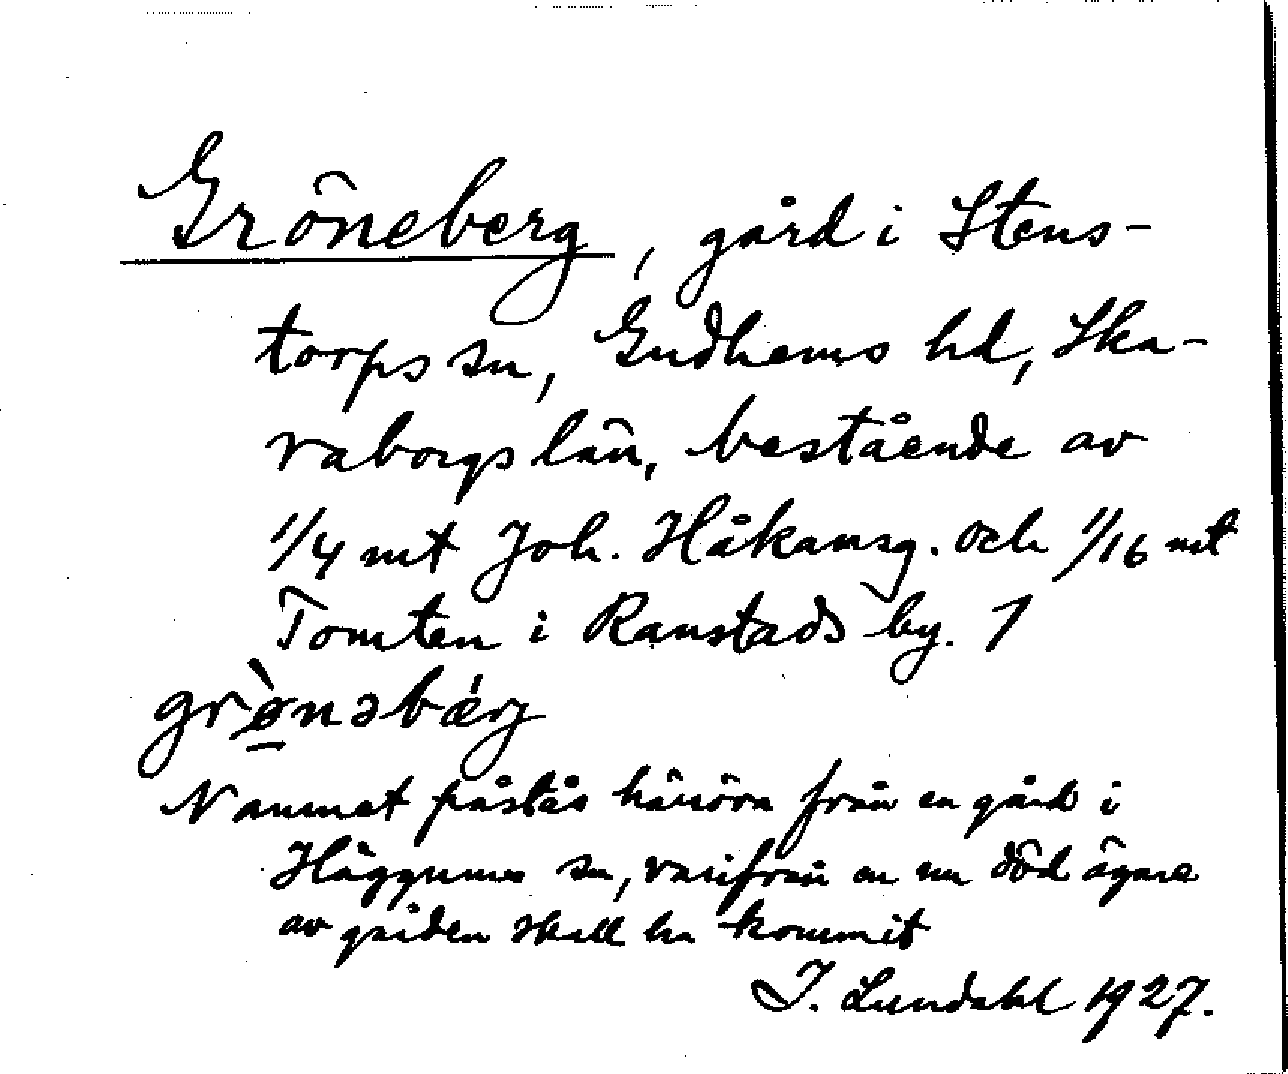 Gröneberg, gård i Stens-
torps sn, Gudhems hd, Ska-
raborgs län, bestående av
1/4 mt Joh. Håkansg. och 1/16 mt
Tomten i Ranstads by. 1
grø̀nəbærj
Namnet påstås härröra från en gård i
Häggums sn, varifrån en nu död ägare
av gården skall ha kommit
I. Lundahl 1927.